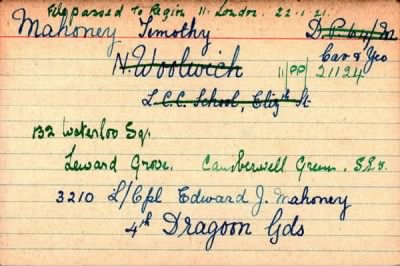 File passed to Region 11. London. 22.1.21.
Mahoney Timothy
N. Woolwich
Cav & Yeo
11/PP/21124
L.C.C. School, Eliz'th St
132 Waterloo Sq.
Leward Grove. Camberwell Green. S.E.5.
3210 L/Cpl Edward J. Mahoney
4th Dragoon Gds